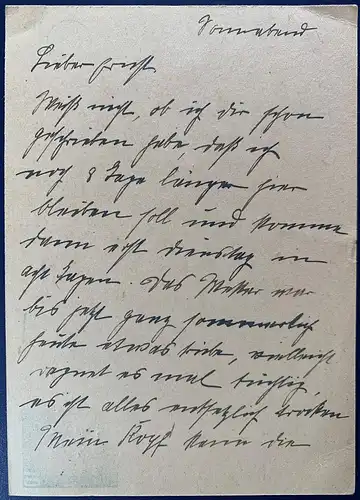 Sonnabend
Lieber Ernst
Weiß nicht, ob ich dir schon
geschrieben habe, daß ich
noch 8 Tage länger hier
bleiben soll und komme
dann erst Dienstag in
acht Tagen. Das Wetter war
bis jetzt ganz sommerlich
heute etwas trübe, vielleicht
regnet es mal tüchtig,
es ist alles entsetzlich trocken
Mein Kopf kann die